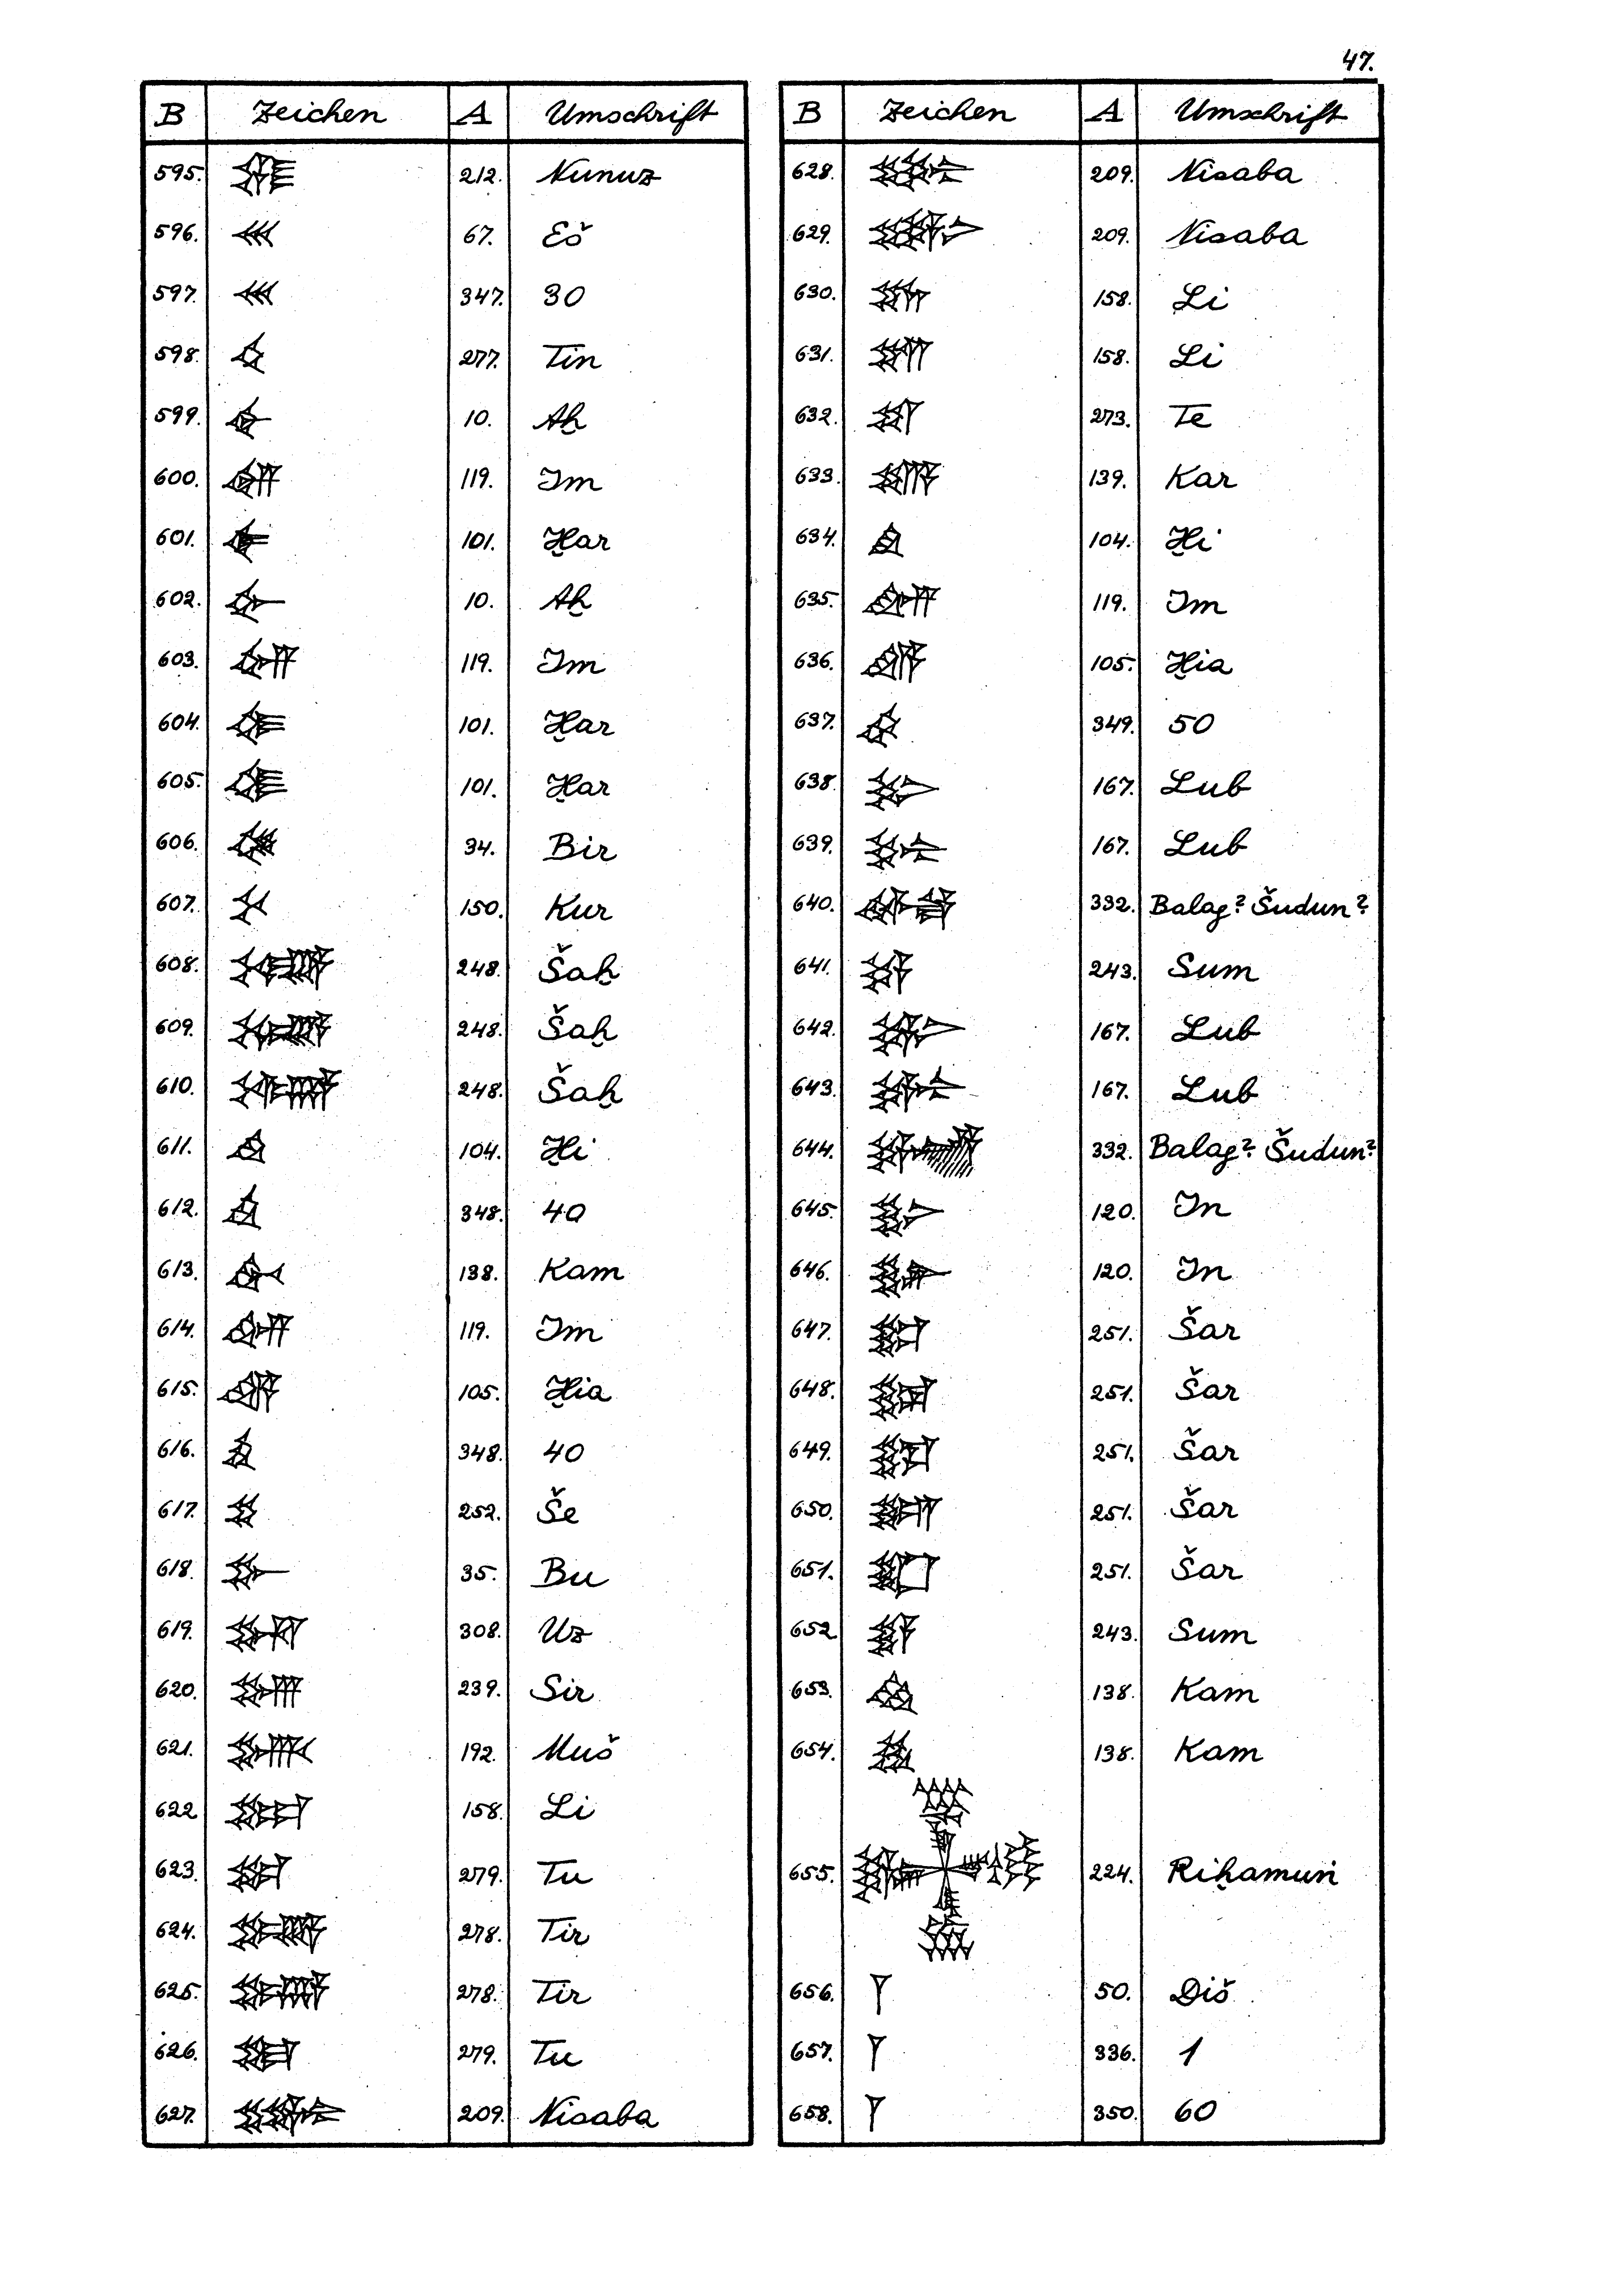 47.
B Zeichen A Umschrift
595. 212. Nunuz
596. 67. Eš
597. 347. 30
598. 277. Tin
599. 10. Aḫ
600. 119. Im
601. 101. Ḫar
602. 10. Aḫ
603. 119. Im
604. 101. Ḫar
605. 101. Ḫar
606. 34. Bir
607. 150. Kur
608. 248. Šaḫ
609. 248. Šaḫ
610. 248. Šaḫ
611. 104. Ḫi
612. 348. 40
613. 138. Kam
614. 119. Im
615. 105. Ḫia
616. 348. 40
617. 252. Še
618. 35. Bu
619. 308. Uz
620. 239. Sir
621. 192. Muš
622 158. Li
623. 279. Tu
624. 278. Tir
625. 278. Tir
626. 279. Tu
627. 209. Nisaba
B Zeichen A Umschrift
628. 209. Nisaba
629. 209. Nisaba
630. 158. Li
631. 158. Li
632. 273. Te
633. 139. Kar
634. 104. Ḫi
635. 119. Im
636. 105. Ḫia
637. 349. 50
638. 167. Lub
639. 167. Lub
640. 332. Balag? Šudun?
641. 243. Sum
642. 167. Lub
643. 167. Lub
644. 332. Balag? Šudun?
645. 120. In
646. 120. In
647. 251. Šar
648. 251. Šar
649. 251. Šar
650. 251. Šar
651. 251. Šar
652 243. Sum
653. 138. Kam
654. 138. Kam
655. 224. Riḫamun
656. 50. Diš
657. 336. 1
658. 350. 60